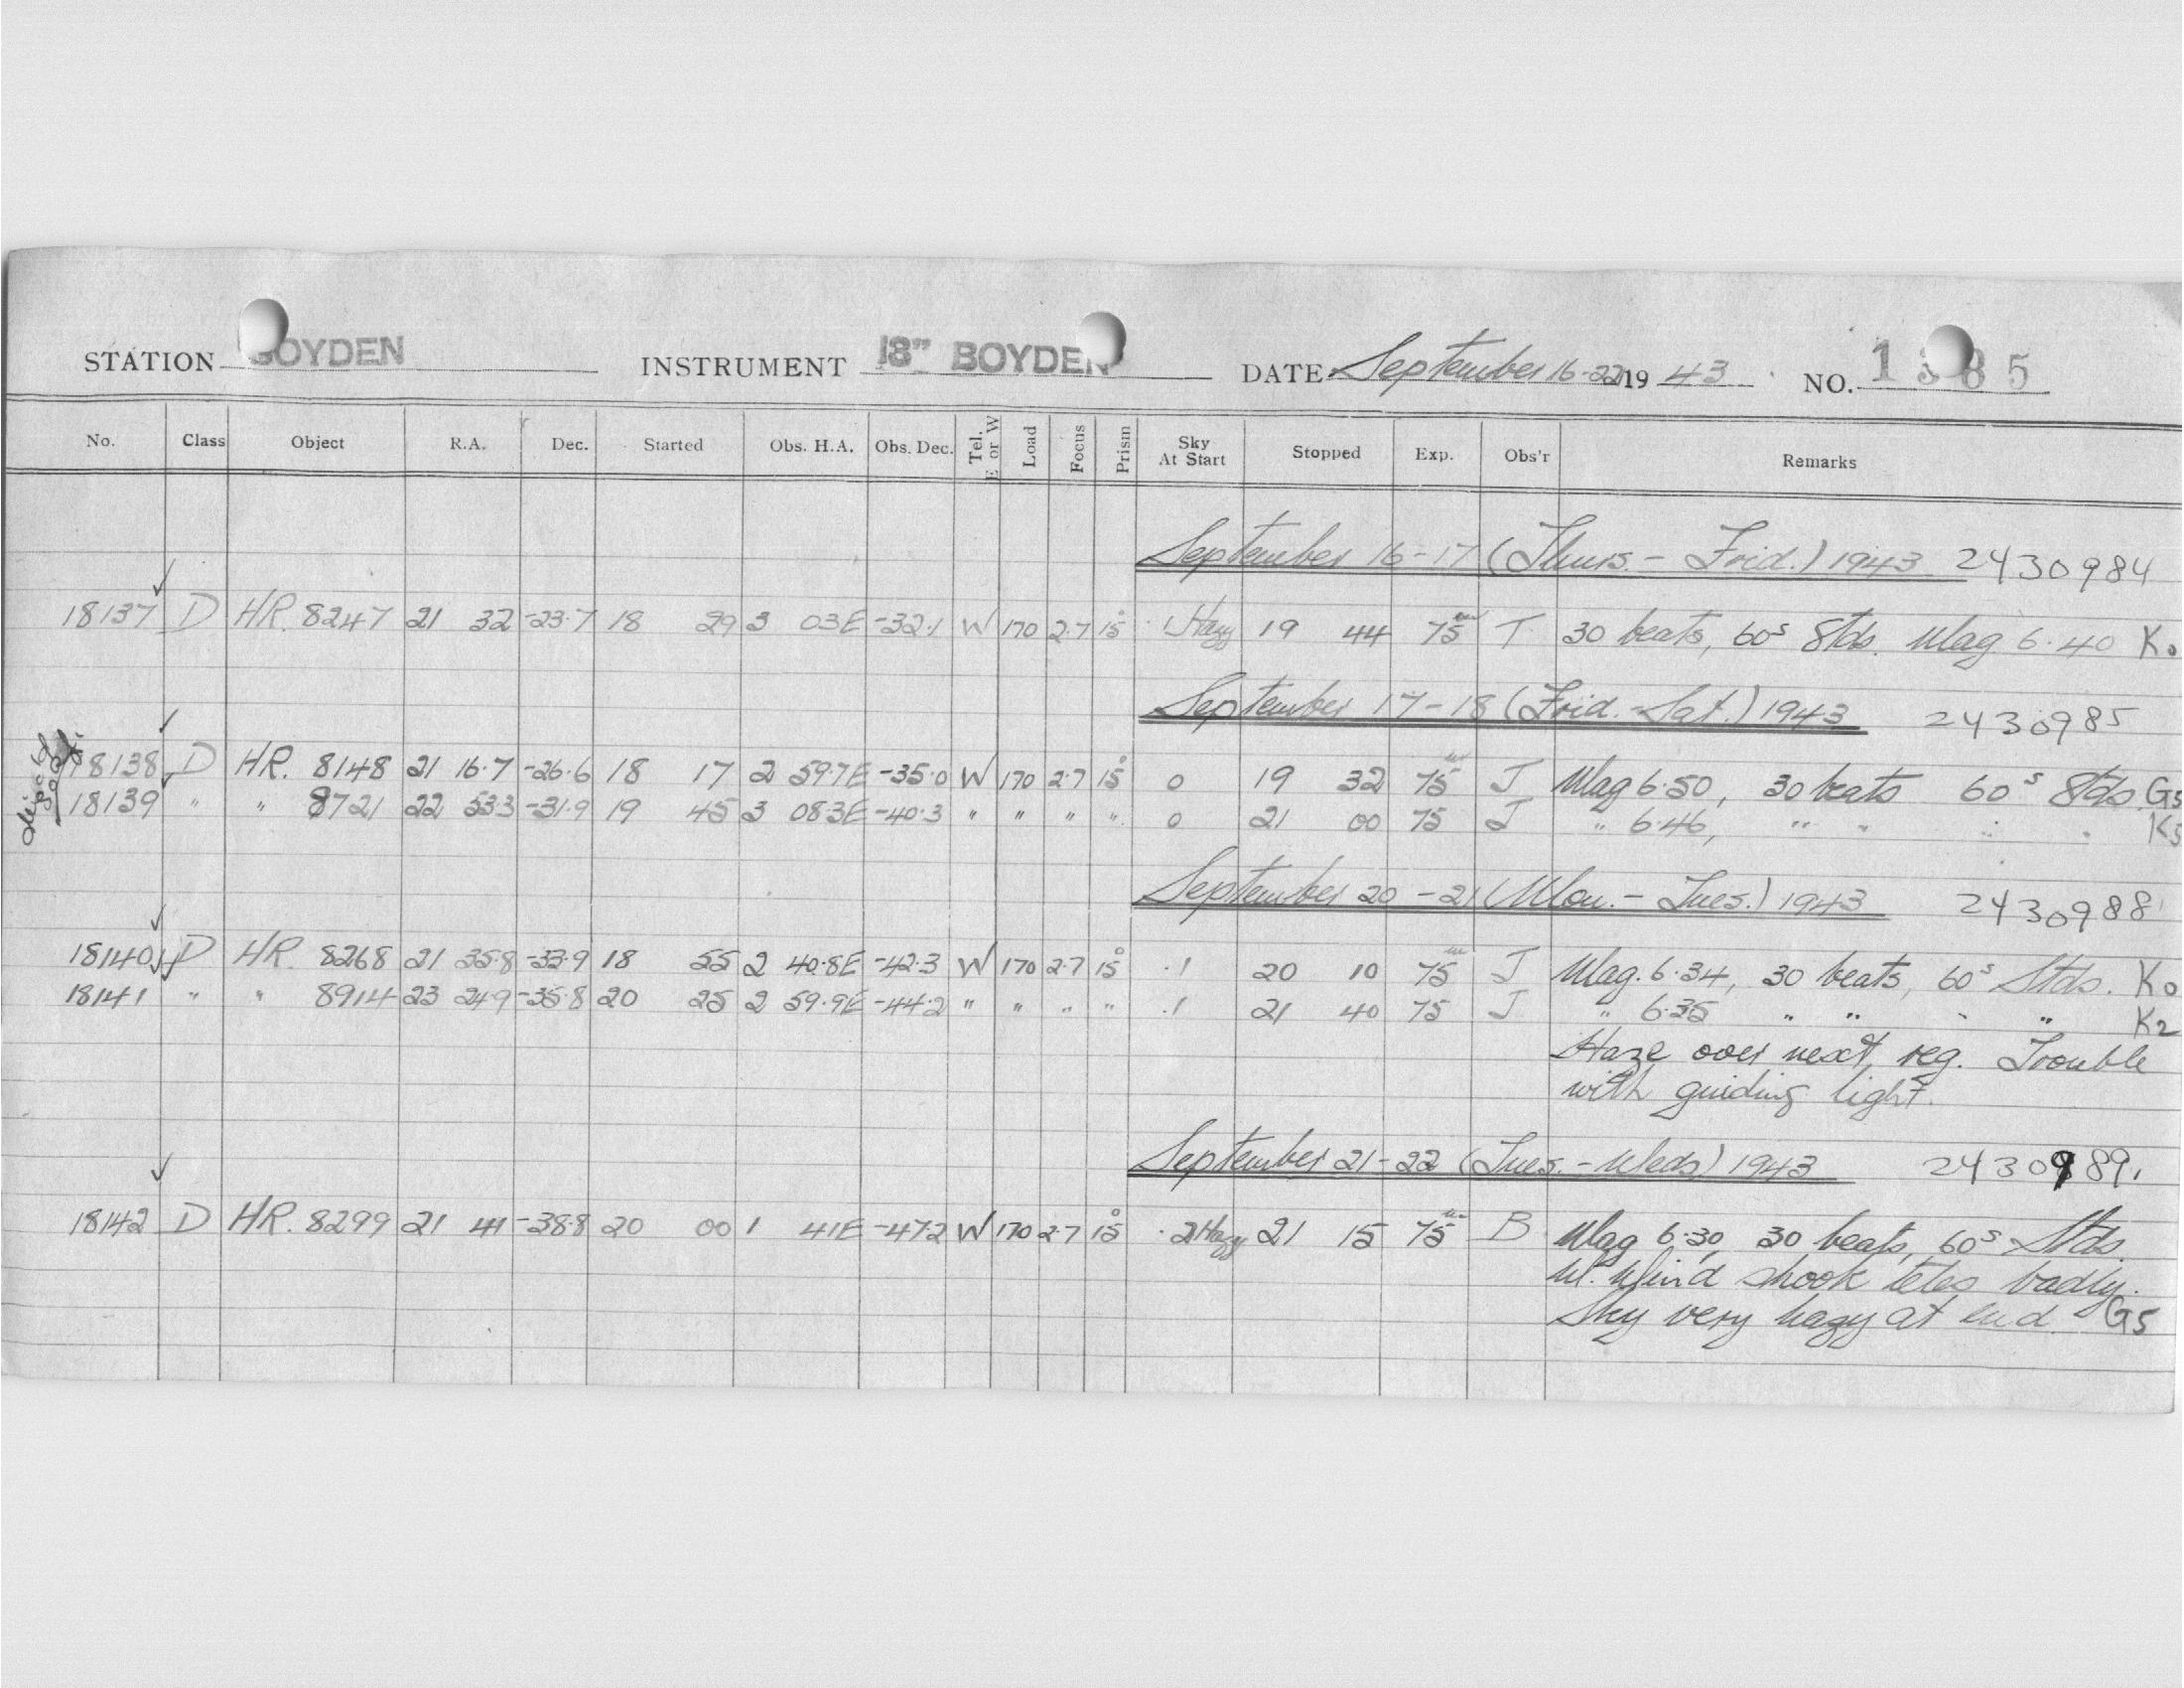 STATION BOYDEN INSTRUMENT 18" BOYDEN DATE September 16-22 1943 NO. 1385
No. Class Object R.A. Dec. Started Obs. H.A. Obs. Dec. Tel. E or W Load Focus Prism Sky At Start Stopped Exp. Obs'r Remarks
September 16-17 (Thurs. - Frid.) 1943 2430984
18137 D HR. 8247 21 32 -23.7 18 29 3 03E -32.1 W 170 2.7 15° .1 Hazy 19 44 75 T 30 beats, 60s Stds. Mag 6.40 K0
September 17-18 (Frid. - Sat.) 1943 2430985
18138 D HR. 8148 21 16.7 -26.6 18 17 2 59.7E -35.0 W 170 2.7 15° 0 19 32 75 J Mag 6.50, 30 beats 60s Stds G5
18139 " " 8721 22 53.3 -31.9 19 45 3 08.3E -40.3 " " " " 0 21 00 75 J " 6.46, " " " " K3
September 20-21 (Mon. - Tues.) 1943 2430988
18140 D HR. 8268 21 35.8 -33.9 18 55 2 40.8E -42.3 W 170 2.7 15° .1 20 10 75 J Mag. 6.34, 30 beats, 60s Stds. K0
18141 " " 8914 23 24.9 -35.8 20 25 2 59.9E -44.2 " " " " .1 21 40 75 J " 6.35 " " " " K2
Haze over next reg. Trouble
with guiding light.
September 21-22 (Tues. - Weds) 1943 2430989.
18142 D HR. 8299 21 41 -38.8 20 00 1 41E -47.2 W 170 2.7 15° .2 Hazy 21 15 75 B Mag 6.30, 30 beats, 60s Stds
W. Wind shook teles badly.
Sky very hazy at end. G5